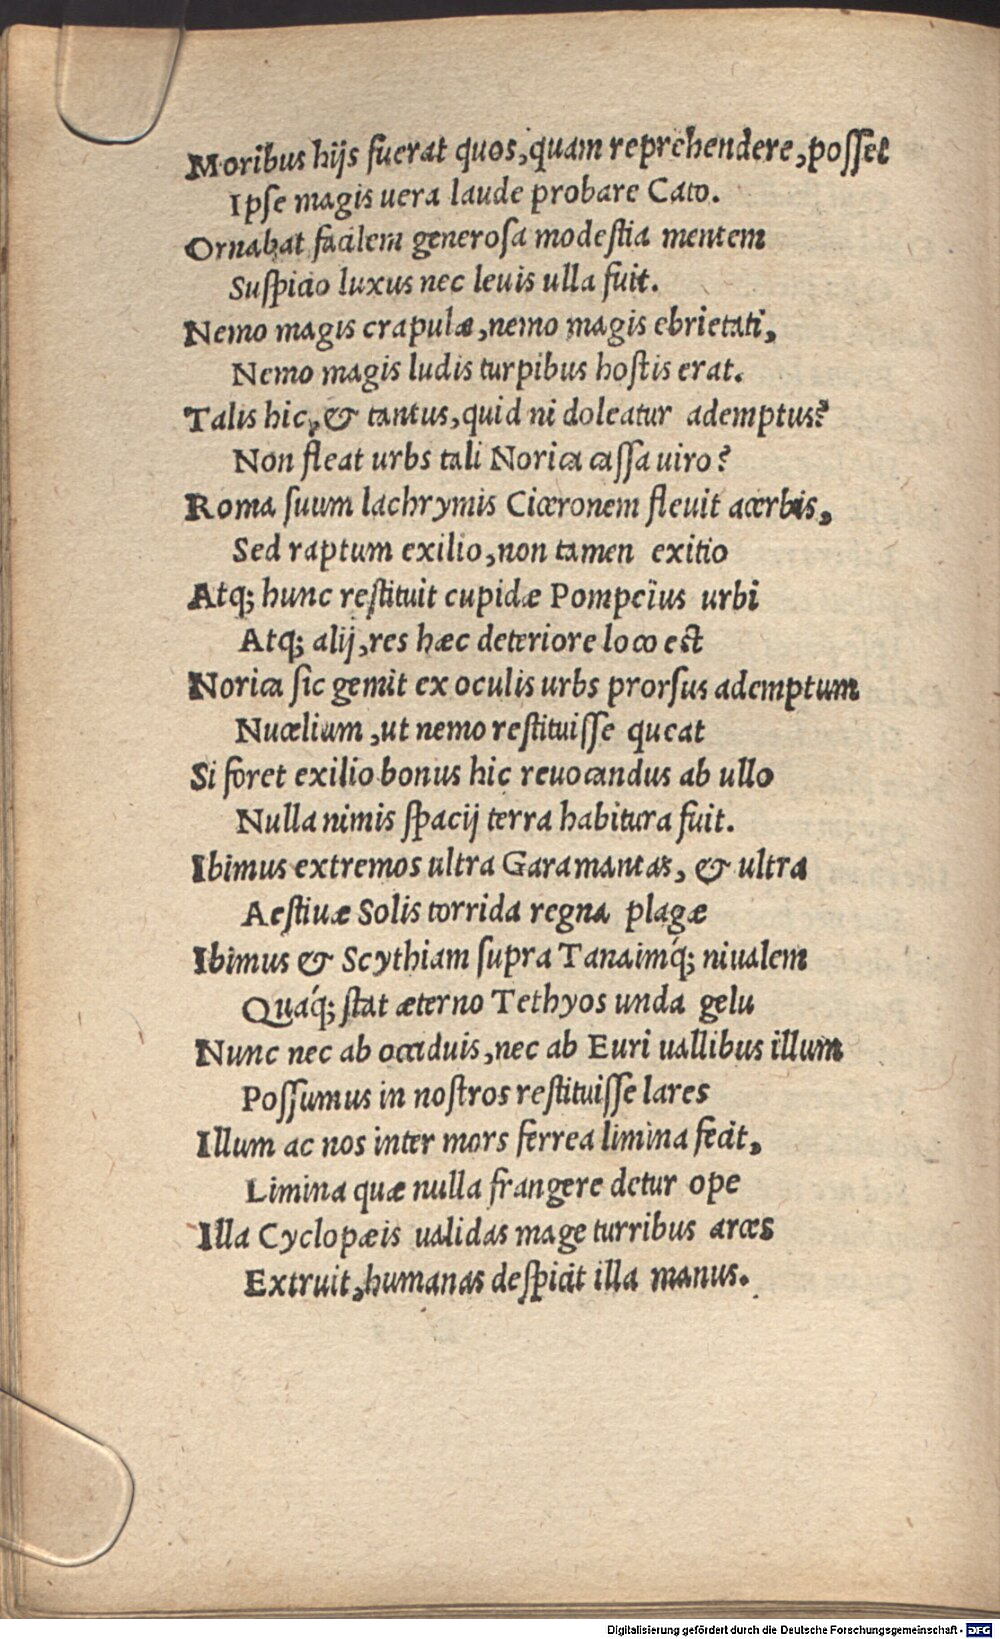 Moribus hijs fuerat quos, quam reprehendere, posset
Ipse magis uera laude probare Cato.
Ornabat facilem generosa modestia mentem
Suspicio luxus nec leuis ulla fuit.
Nemo magis crapulæ, nemo magis ebrietati,
Nemo magis ludis turpibus hostis erat.
Talis hic, & tantus, quid ni doleatur ademptus?
Non fleat urbs tali Norica cassa uiro?
Roma suum lachrymis Ciceronem fleuit acerbis,
Sed raptum exilio, non tamen exitio
Atq; hunc restituit cupidæ Pompeïus urbi
Atq; alij, res hæc deteriore loco est
Norica sic gemit ex oculis urbs prorsus ademptum
Nucelium, ut nemo restituisse queat
Si foret exilio bonus hic reuocandus ab ullo
Nulla nimis spacij terra habitura fuit.
Ibimus extremos ultra Garamantas, & ultra
Aestiuæ Solis torrida regna plagæ
Ibimus & Scythiam supra Tanaimq́; niualem
Quáq́; stat æterno Tethyos unda gelu
Nunc nec ab occiduis, nec ab Euri uallibus illum
Possumus in nostros restituisse lares
Illum ac nos inter mors ferrea limina fecit,
Limina quæ nulla frangere detur ope
Illa Cyclopæis ualidas mage turribus arces
Extruit, humanas despicit illa manus.
Digitalisierung gefördert durch die Deutsche Forschungsgemeinschaft - DFG